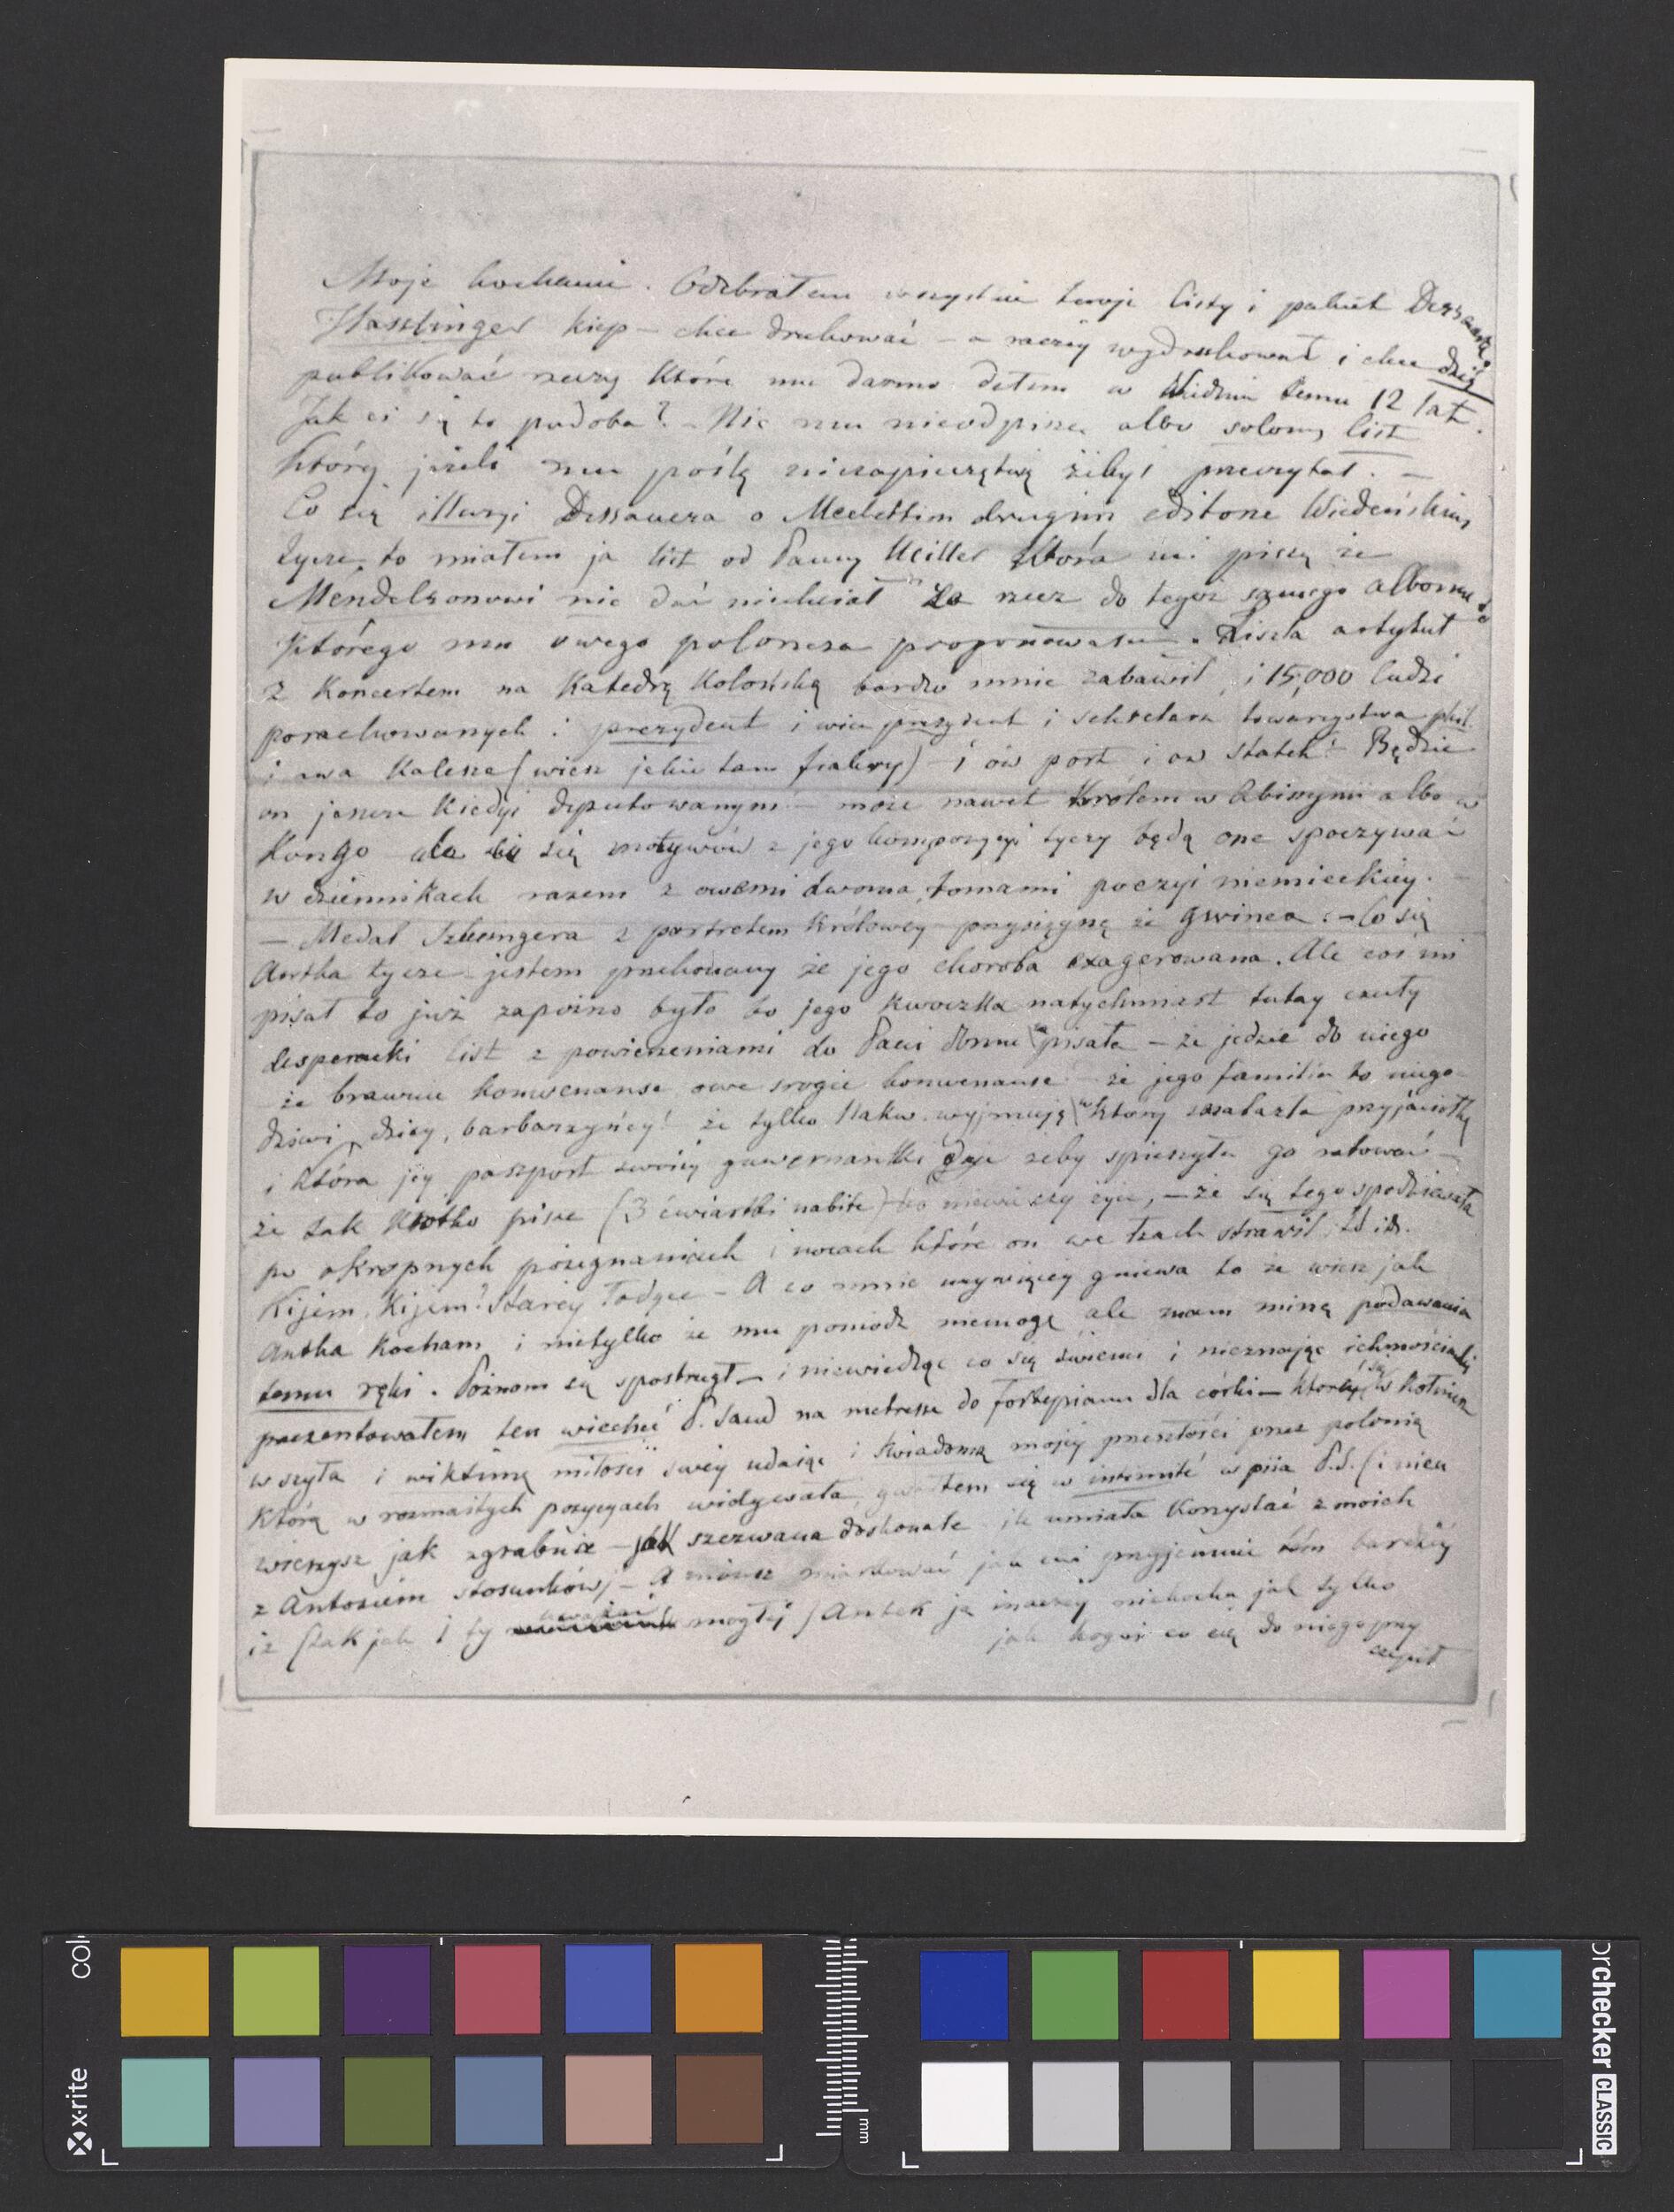 Moje kochanie. Odebrałem wszystkie twoje listy i pakiet Dessauera.
Hasslinger kiep – chce drukować – a raczej wydrukował i chce dziś
publikować rzeczy które mu darmo dałem w Widniu temu 12 lat.
Jak ci się to podoba? – Nic mu nieodpiszę albo solony list
który jeżeli mu poślę niezapieczętuję żebyś przeczytał. –
Co się illuzyi Dessauera o Mechettim drugim editorze Wiedeńskim
tycze, to miałem ja list od Panny Müller która mi pisze że
Mendelsonowi nic dać niechciał za rzecz do tegoż samego albomu do
którego mu owego poloneza proponowałem. Liszta artykuł
z Koncertem na Katedrę Kolońską bardzo mnie zabawił, i 15,000 ludzi
porachowanych i prezydent i wice prezydent i sekretarz towarzystwa phil.
i owa Kalesze (wiesz jakie tam fiakry) – i ów port i ów statek! Będzie
on jeszcze kiedyś deputowanym – może nawet królem w Abissynii albo w
Kongo – ale co się motywów z jego kompozycyi tyczy będą one spoczywać
w dziennikach razem z owemi dwoma tomami poezyi niemieckiej. –
– Medal Szlezingera z portretem królowej – przysięgnę że gwinea. – Co się
Antka tycze – jestem przekonany że jego choroba exagerowana. Ale coś mi
pisał to już zapóźno było bo jego kwoczka natychmiast tutaj czuły
desperacki list z powierzeniami do Pani domu pisała – że jedzie do niego
– że brawuie konwenanse owe srogie konwenanse – że jego familia to niego-
dziwi, dzicy, barbarzyńcy! że tylko Nakw. wyjmują w który znalazła przyjaciółkę
i która jej paszport swojej guwernantki daje żeby spieszyła go ratować –
że tak krótko pisze (3 ćwiartki nabite) bo niewie czy żyje, – że się tego spodziewała
po okropnych pożegnaniach i nocach które on we łzach strawił; etc.
Kijem, Kijem! Starej Łodzce – A co mnie najwięcej gniewa to że wiesz jak
Antka Kocham i nietylko że mu pomódz niemogę ale mam minę podawania
temu ręki. Późnom się spostrzegł – i niewiedząc co się święci i nieznając ichmościanki
prezentowałem ten wiecheć P. Sand na metressę do fortepianu dla córki – która się w kołnierz
wszyła i wiktimą miłości swej udając i świadomą mojej przeszłości przez polonią
którą w rozmaitych pozycyach widywała, gwałtem się w intimité wpiła P.S. (i nieu
wierzysz jak zgrabnie – jak szczwana doskonale – ile umiała korzystać z moich
z Antosiem stosunków) – A możesz miarkować jak mi przyjemnie tém bardziej
iż (tak jak i ty uważać mogłeś) Antek ją inaczej niekocha jak tylko
jak kogoś co się do niego przy
czepił